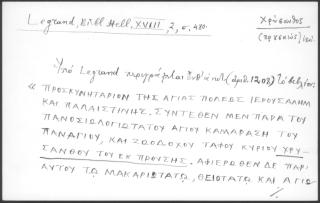 Legrand, Bibl. Hell. XVIII, 2, σ. 480.
Χρύσανθος
(Προύσης) ἱερ.
Ὑπὸ Legrand περιγράφεται ὑπ' ἀριθ. (ἀριθ. 1208) τὸ
« ΠΡΟΣΚΥΝΗΤΑΡΙΟΝ ΤΗΣ ΑΓΙΑΣ ΠΟΛΕΩΣ ΙΕΡΟΥΣΑΛΗΜ
ΚΑΙ ΠΑΛΑΙΣΤΙΝΗΣ. ΣΥΝΤΕΘΕΝ ΜΕΝ ΠΑΡΑ ΤΟΥ
ΠΑΝΟΣΙΟΛΟΓΙΩΤΑΤΟΥ ΑΓΙΟΥ ΚΑΜΑΡΑΣΗ ΤΟΥ
ΠΑΝΑΓΙΟΥ, ΚΑΙ ΖΩΟΔΟΧΟΥ ΤΑΦΟΥ ΚΥΡΙΟΥ ΧΡΥ
ΣΑΝΘΟΥ ΤΟΥ ΕΚ ΠΡΟΥΣΗΣ. ΑΦΙΕΡΩΘΕΝ ΔΕ ΠΑΡ'
ΑΥΤΟΥ ΤΩ ΜΑΚΑΡΙΩΤΑΤΩ, ΘΕΙΟΤΑΤΩ ΚΑΙ ΑΓΙΩ
./.